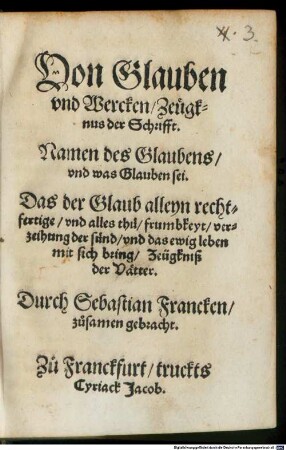 X. 3.
Von Glauben
vnd Wercken/ Zeügk-
nus der Schrifft.
Namen des Glaubens/
vnd was Glauben sei.
Das der Glaub alleyn recht-
fertige/ vnd alles thů/ frumbkeyt/ ver-
zeihung der sünd/ vnd das ewig leben
mit sich bring/ Zeügkniß
der Vätter.
Durch Sebastian Francken/
zůsamen gebracht.
Zů Franckfurt/ truckts
Cyriack Jacob.